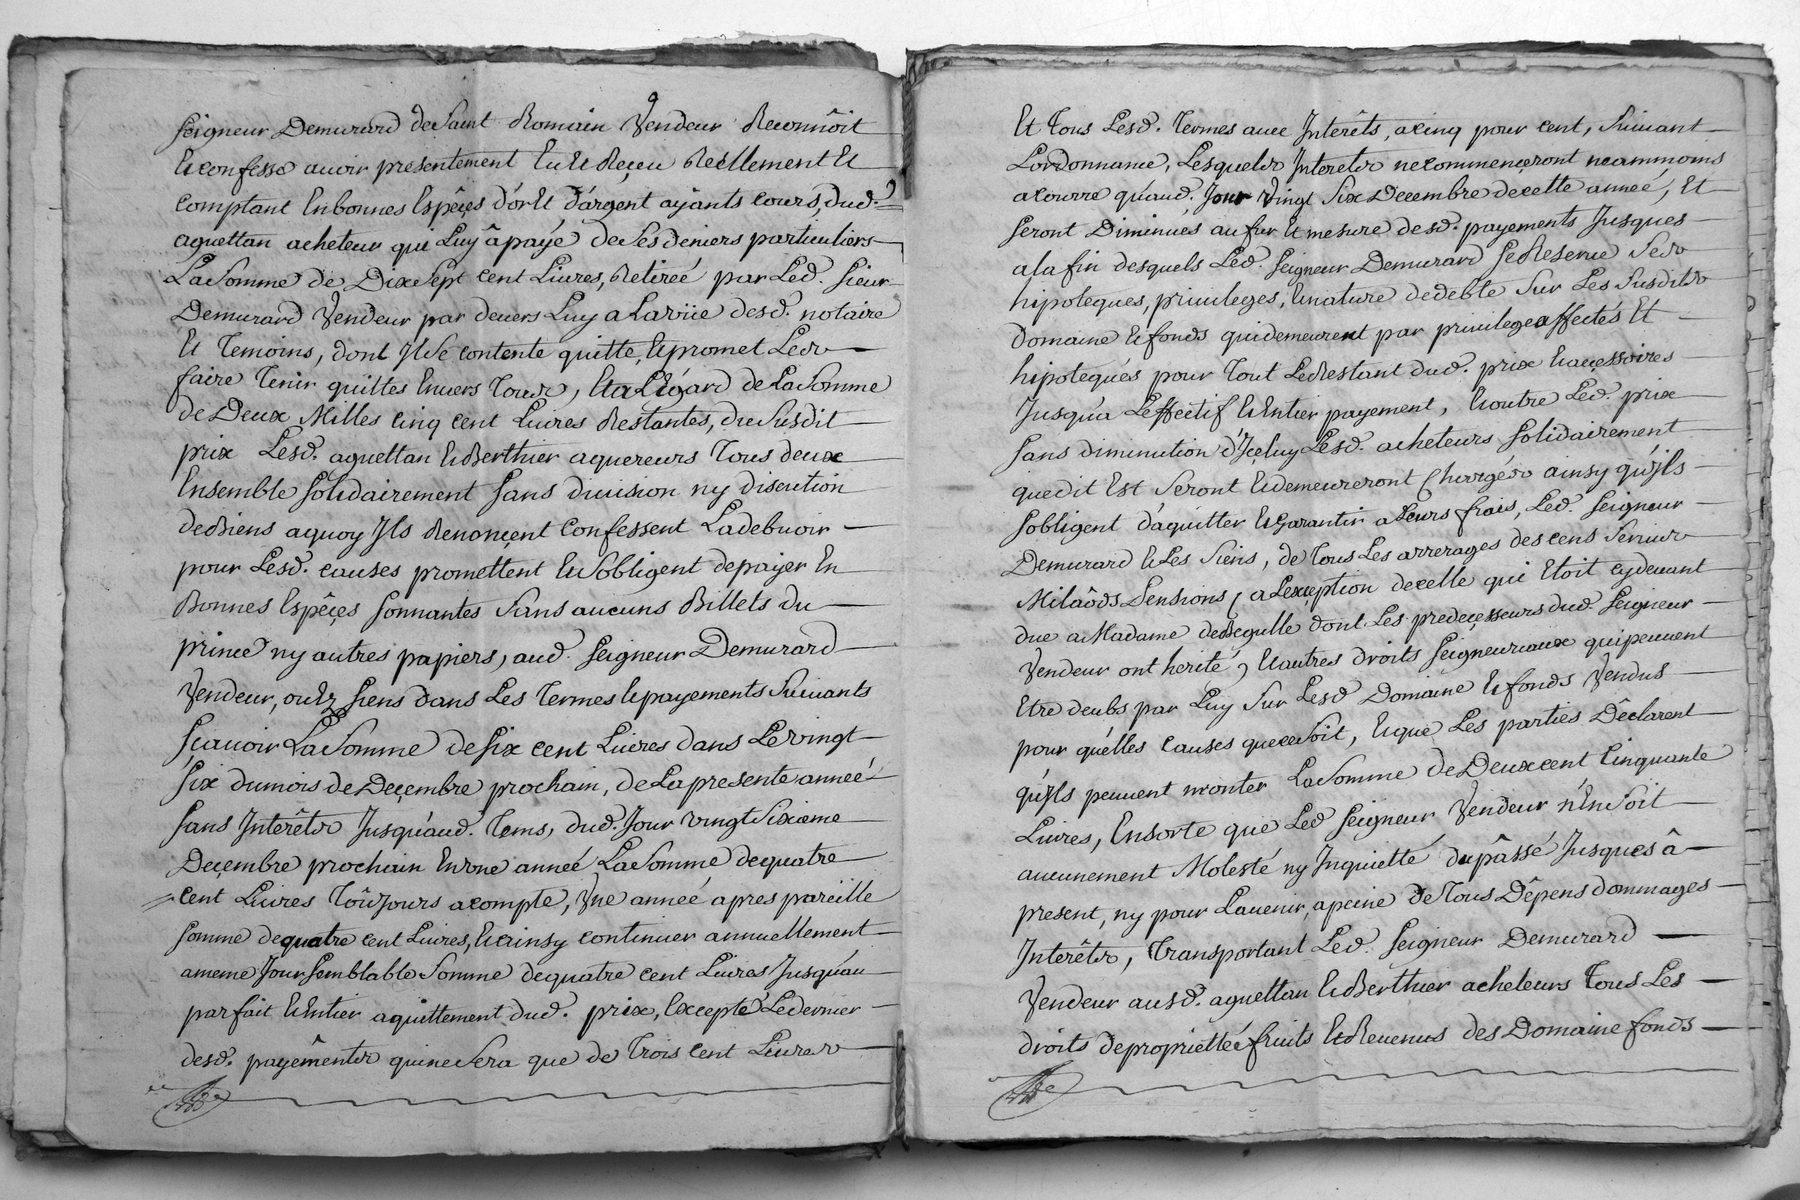 9
seigneur Demurard de Saint Romain Vendeur Reconnôit
Et confesse avoir presentement Eu Et Reçeu Reellement Et
comptant En bonnes Espêçes d'or Et d'argent ayânts cours, dud.
aguettan acheteur qui Luy â payé de Ses deniers particuliers
La Somme de Dix Sept cent Livres, Retireé par Led. Sieur
Demurard Vendeur par devers Luy a La vüe desd. notaire
Et Temoins, dont Il Se contente quitte, Et promet Les
faire Tenir quittes Envers Tous, Et a L'Egard de La Somme
de Deux Milles Cinq cent Livres Restantes, du Susdit
prix Lesd. aguettan Et Berthier aquereurs Tous deux
Ensemble Solidairement Sans division ny discution
de Biens a quoy Ils Renonçent Confessent La debvoir
pour Lesd. causes promettent Et S'obligent de payer En
Bonnes Espêçes Sonnantes Sans aucuns Billets du
prince ny autres papiers, aud. Seigneur Demurard
Vendeur, ou Ez Siens dans Les Termes Et payements Suivants
Sçavoir La Somme de Six cent Livres dans Le vingt
Six du mois de Deçembre prochain, de La presente anneé
Sans Interêts Jusqu'aud. Tems, dud. Jour vingt Sixieme
Deçembre prochain En une anneé La Somme de quatre
cent Livres Toûjours a compte, Vne anneé apres pareille
Somme de quatre cent Livres, Et ainsy continuer annuellement
a meme Jour Semblable Somme de quatre cent Livres Jusqu'au
parfait Et Entier aquittement dud. prix, Excepté Le dernier
desd. payêments qui ne Sera que de Trois cent Livres
Et Tous Lesd. Termes avec Interêts, a cinq pour cent, Suivant
L'ordonnance, Lesquels Interets ne commençeront neammoins
a courre qu'aud. Jour Vingt Six Decembre de cette anneé, Et
Seront Diminués au fur Et mesure desd. payements Jusques
a la fin desquels Led. Seigneur Demurard Se Reserve Ses
hipoteques, privileges, Et nature de debte Sur Les Susdits
Domaine Et fonds qui demeurent par privilege affectés Et
hipotequés pour Tout Le Restant dud. prix Et acçessoires
Jusqu'a L'effectif Et Entier payement, Et outre Led. prix
Sans diminution d'Içeluy Lesd. acheteurs Solidairement
que dit Est Seront Et demeureront Chargés ainsy qu'Ils
S'obligent d'aquitter Et Garantir a Leurs frais, Led. Seigneur
Demurard Et Les Siens, de Tous Les arrerages des cens Servis
Milaôds Pensions (a L'exception de celle qui Etoit cy devant
due a Madame de Regulle dont Les predeçesseurs dud. Seigneur
Vendeur ont herité) Et autres droits Seigneuriaux qui peuvent
Etre deubs par Luy Sur Lesd Domaine Et fonds Vendus
pour quelles Causes que ce Soit, Et que Les parties Dêclarent
qu'Ils peuvent monter La Somme de Deux cent Cinquante
Livres, En Sorte que Led Seigneur Vendeur n'En Soit
aucunement Molesté ny Inquietté du pâssé Jusques â
present, ny pour L'avenir, a peine de Tous Dêpens dommages
Interêts, Transportant Led. Seigneur Demurard
Vendeur ausd. aguettan Et Berthier acheteurs Tous Les
droits de proprietteé fruits Et Revenus des Domaine fonds